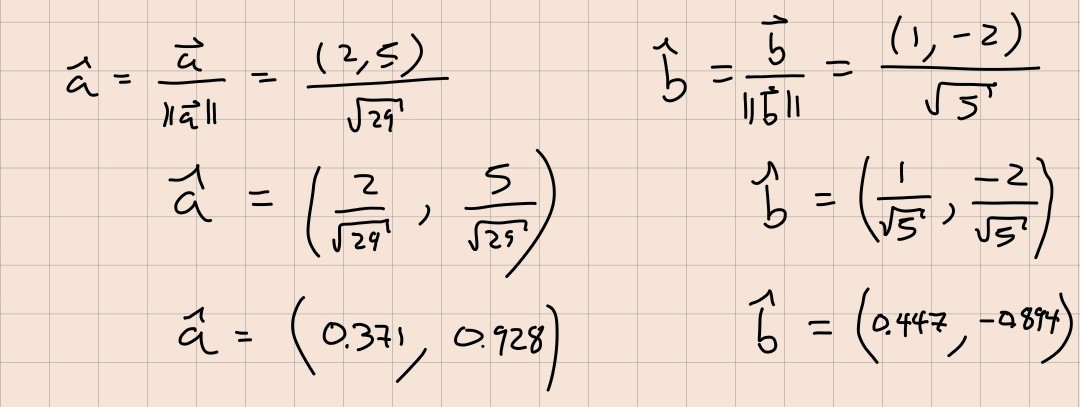 â = a⃗ / ||a⃗|| = (2, 5) / √29
â = (2/√29, 5/√29)
â = (0.371, 0.928)
b̂ = b⃗ / ||b⃗|| = (1, -2) / √5
b̂ = (1/√5, -2/√5)
b̂ = (0.447, -0.894)